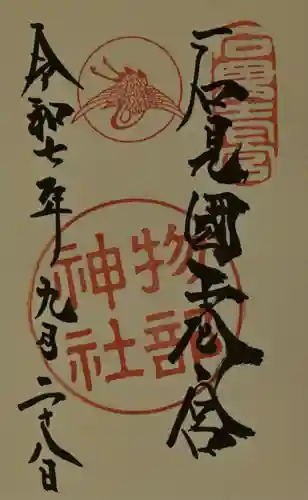 石見國一之宮
物部
神社
令和七年九月二十八日